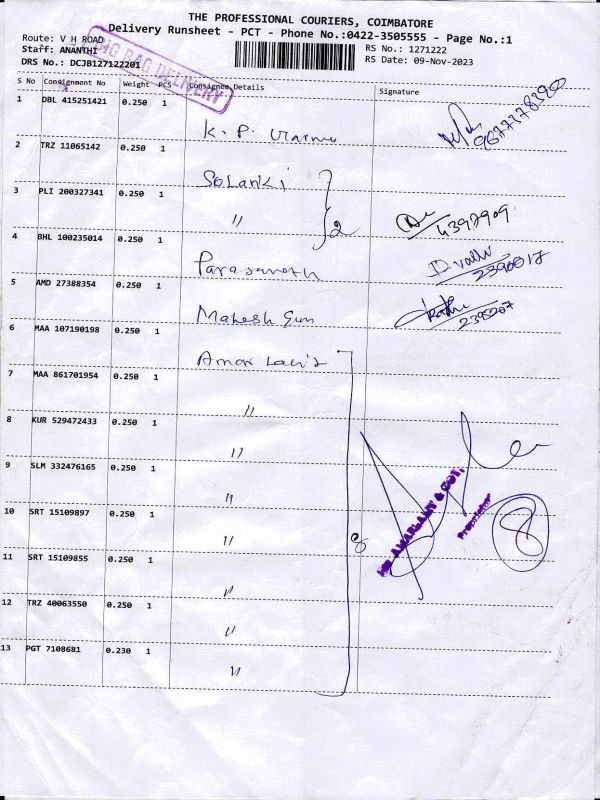 THE PROFESSIONAL COURIERS, COIMBATORE
Delivery Runsheet - PCT - Phone No.:0422-3505555 - Page No.:1
Route: V H ROAD
Staff: ANANTHI
DRS No.: DCJB127122201
BIG BAG DELIVERY
RS No.: 1271222
RS Date: 09-Nov-2023
S No Consignment No Weight PCS Consignee Details Signature
1 DBL 415251421 0.250 1 K. P. Varma
9677378390
2 TRZ 11065142 0.250 1 Solanki
3 PLI 200327341 0.250 1 " 2 4392909
4 BHL 100235014 0.250 1 Parasanath D. valli 2390017
5 AMD 27388354 0.250 1 Mahesh Gum 2395207
6 MAA 107190198 0.250 1 Amar
7 MAA 861701954 0.250 1 "
8 KUR 529472433 0.250 1 "
9 SLM 332476165 0.250 1 "
10 SRT 15109897 0.250 1 "
8
Proprietor
8
11 SRT 15109855 0.250 1 "
12 TRZ 40063550 0.250 1 "
13 PGT 7108681 0.230 1 "